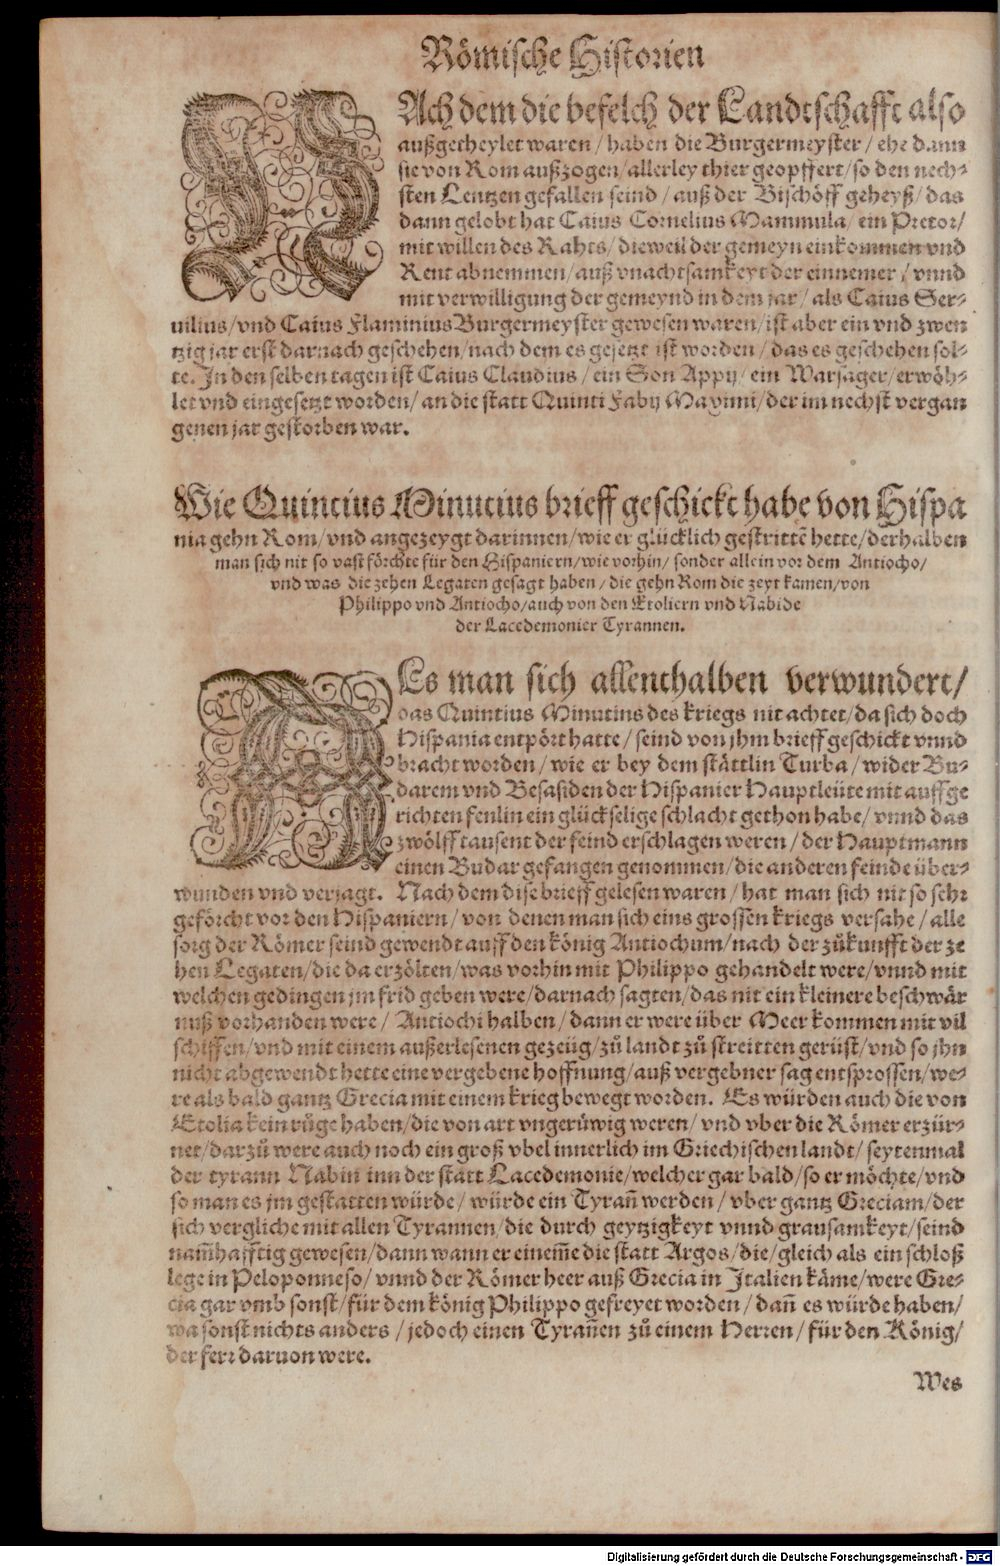 Römische Historien
NAch dem die befelch der Landtschafft also
außgetheylet waren / haben die Burgermeyster / ehe dann
sie von Rom außzogen / allerley thier geopffert / so den nech⸗
sten Lentzen gefallen seind / auß der Bischöff geheyß / das
dann gelobt hat Caius Cornelius Mammula / ein Pretor /
mit willen des Rahts / dieweil der gemeyn einkommen vnd
Rent abnemmen / auß vnachtsamkeyt der einnemer / vnnd
mit verwilligung der gemeynd in dem jar / als Caius Ser⸗
uilius / vnd Caius Flaminius Burgermeyster gewesen waren / ist aber ein vnd zwen
tzig jar erst darnach geschehen / nach dem es gesetzt ist worden / das es geschehen sol⸗
te. In den selben tagen ist Caius Claudius / ein Son Appij / ein Warsager / erwöh⸗
let vnd eingesetzt worden / an die statt Quinti Fabij Maximi / der im nechst vergan
genen jar gestorben war.
Wie Quintius Minutius brieff geschickt habe von Hispa
nia gehn Rom / vnd angezeygt darinnen / wie er glücklich gestrittē hette / derhalben
man sich nit so vast förchte für den Hispaniern / wie vorhin / sonder allein vor dem Antiocho /
vnd was die zehen Legaten gesagt haben / die gehn Rom die zeyt kamen / von
Philippo vnd Antiocho / auch von den Etoliern vnd Nabide
der Lacedemonier Tyrannen.
ALs man sich allenthalben verwundert /
das Quintius Minutius des kriegs nit achtet / da sich doch
Hispania entpört hatte / seind von jhm brieff geschickt vnnd
bracht worden / wie er bey dem stättlin Turba / wider Bu⸗
darem vnd Besasiden der Hispanier Hauptleüte mit auffge
richten fenlin ein glückselige schlacht gethon habe / vnnd das
zwölff tausent der feind erschlagen weren / der Hauptmann
einen Budar gefangen genommen / die anderen feinde über⸗
wunden vnd verjagt. Nach dem dise brieff gelesen waren / hat man sich nit so sehr
geförcht vor den Hispaniern / von denen man sich eins grossen kriegs versahe / alle
sorg der Römer seind gewendt auff den könig Antiochum / nach der zůkunfft der ze
hen Legaten / die da erzölten / was vorhin mit Philippo gehandelt were / vnnd mit
welchen gedingen jm frid geben were / darnach sagten / das nit ein kleinere beschwär
nuß vorhanden were / Antiochi halben / dann er were über Meer kommen mit vil
schiffen / vnd mit einem außerlesenen gezeüg / zů landt zů streitten gerüst / vnd so jhn
nicht abgewendt hette eine vergebene hoffnung / auß vergebner sag entsprossen / we⸗
re als bald gantz Grecia mit einem krieg bewegt worden. Es würden auch die von
Etolia kein růge haben / die von art vngerüwig weren / vnd vber die Römer erzür⸗
net / darzů were auch noch ein groß vbel innerlich im Griechischen landt / seytenmal
der tyrann Nabin inn der statt Lacedemonie / welcher gar bald / so er möchte / vnd
so man es jm gestatten würde / würde ein Tyrañ werden / vber gantz Greciam / der
sich vergliche mit allen Tyrannen / die durch geytzigkeyt vnnd grausamkeyt / seind
nam̃hafftig gewesen / dann wann er einem̃e die statt Argos / die / gleich als ein schloß
lege in Peloponneso / vnnd der Römer heer auß Grecia in Italien käme / were Gre⸗
cia gar vmb sonst / für dem könig Philippo gefreyet worden / dañ es würde haben /
wa sonst nichts anders / jedoch einen Tyrañen zů einem Herren / für den König /
der ferr daruon were.
Wes
Digitalisierung gefördert durch die Deutsche Forschungsgemeinschaft - DFG